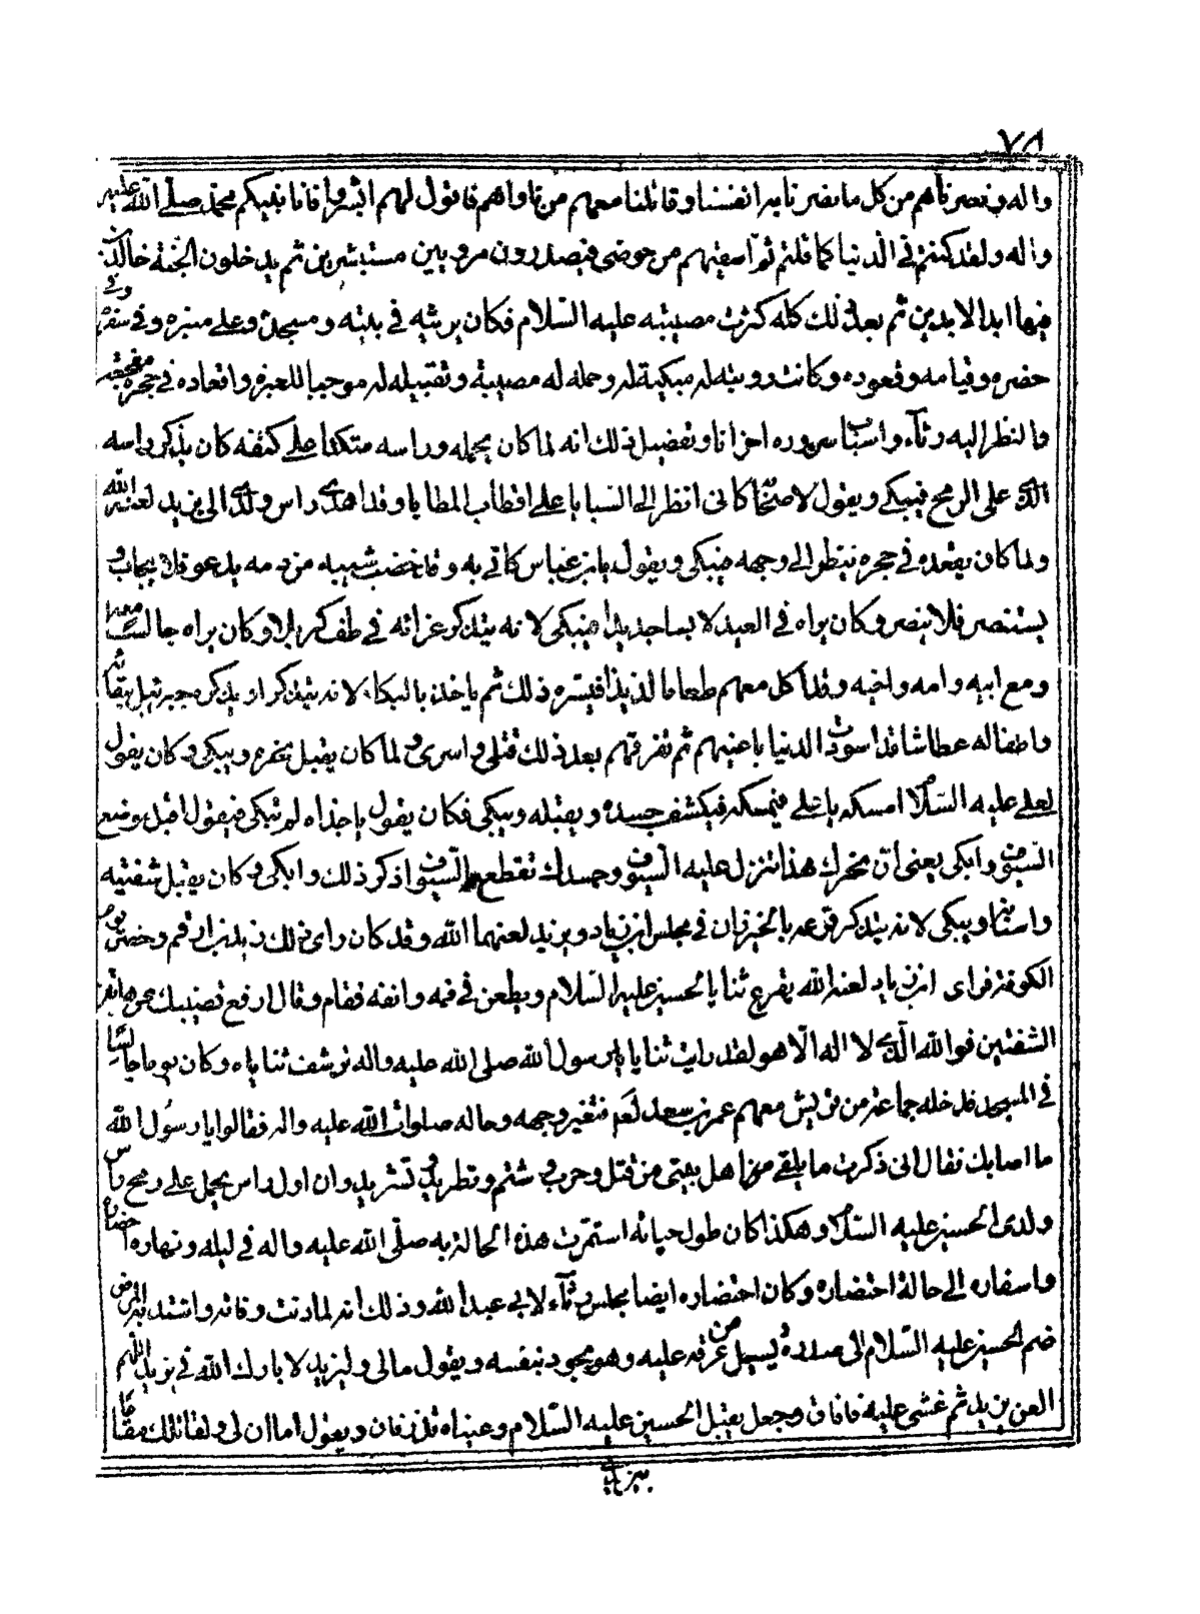 ٧٨
واله ونصرناهم من كل ما نصرنا به انفسنا وقاتلنا معهم من ناواهم فاقول لهم ابشروا فانا نبيكم محمد صلى الله عليه
واله ولقد كنتم في الدنيا كما قلتم ثم اسقيهم من حوضي فيصدرون مرويين مستبشرين ثم يدخلون الجنة خالدين
فيها ابد الابدين ثم بعد ذلك كله كثرت مصيبته عليه السلام فكان يرثيه في بيته ومسجده وعلى منبره وفي سفره و
حضره وقيامه وقعوده وكانت رويته له مبكية له وحمله له مصيبة وتقبيله له موجبا للعبرة واقعاده في حجره مفجعة
والنظر اليه رثاء واسباب سروره احزانا وتفضيل ذلك انه لما كان يحمله وراسه متكئا على كتفه كان يذكر راسه
الذي على الرمح فيبكي ويقول لاصحابه كاني انظر الى السبايا على اقطاب المطايا وقد اهدي راس ولدي الى يزيد لعنه الله
ولما كان يقعده في حجره ينظر الى وجهه فيبكي ويقول يا بن عباس كاني به وقد خضب شيبه من دمه يدعو فلا يجاب و
يستنصر فلا ينصر وكان يراه في العيد لابسا جديدا فيبكي لانه يتذكر عرائه في طف كربلا وكان يراه جالسا معه
ومع ابيه وامه واخيه وقد اكل معهم طعاما لذيذا فيسره ذلك ثم ياخذ بالبكاء لانه يتذكر او يذكره جبرئيل بقائه
واطفاله عطاشا قد اسودت الدنيا باعينهم ثم تفرقهم بعد ذلك قتلى واسرى ولما كان يقبل نحره ويبكي وكان يقول
لعلي عليه السلام امسكه يا علي فيمسكه فيكشف جسده ويقبله ويبكي فكان يقول يا جداه لم تبكي فيقول اقبل موضع
السيوف وابكي يعني ان نحرك هذا تنزل عليه السيوف وجسدك تقطع السيوف اذكر ذلك وابكي وكان يقبل شفتيه
واسنانه ويبكي لانه يتذكر قرعه بالخيزران في مجلس ابن زياد ويزيد لعنهما الله وقد كان راى ذلك زيد بن ارقم وحضر يوم
الكوفة فراى ابن زياد لعنه الله يقرع ثنايا الحسين عليه السلام ويطعن في فمه وانفه فقام وقال ارفع قضيبك عن هاتين
الشفتين فوالله الذي لا اله الا هو لقد رايت ثنايا رسول الله صلى الله عليه واله ترشف ثناياه وكان يوما جالسا
في المسجد فدخله جماعة من قريش معهم عمر بن سعد لعنه فتغير وجهه وحاله صلوات الله عليه واله فقالوا يا رسول الله
ما اصابك فقال اني ذكرت ما يلقى من اهل بيتي من قتل وضرب وشتم وتطريد وتشريد وان اول راس يحمل على رمح راس
ولدي الحسين عليه السلام وهكذا كان طول حياته استمرت هذه الحالة به صلى الله عليه واله في ليله ونهاره احضاره
واسفاره الى حالة احتضاره وكان احتضاره ايضا مجلس رثاء لابي عبد الله وذلك انه لما دنت وفاته واشتد به المرض
ضم الحسين عليه السلام الى صدره يسيل من عرقه عليه وهو يجود بنفسه ويقول مالي وليزيد لا بارك الله في يزيد اللهم
العن يزيد ثم غشي عليه فافاق وجعل يقبل الحسين عليه السلام وعيناه تذرفان ويقول اما ان لي ولقاتلك مقاما